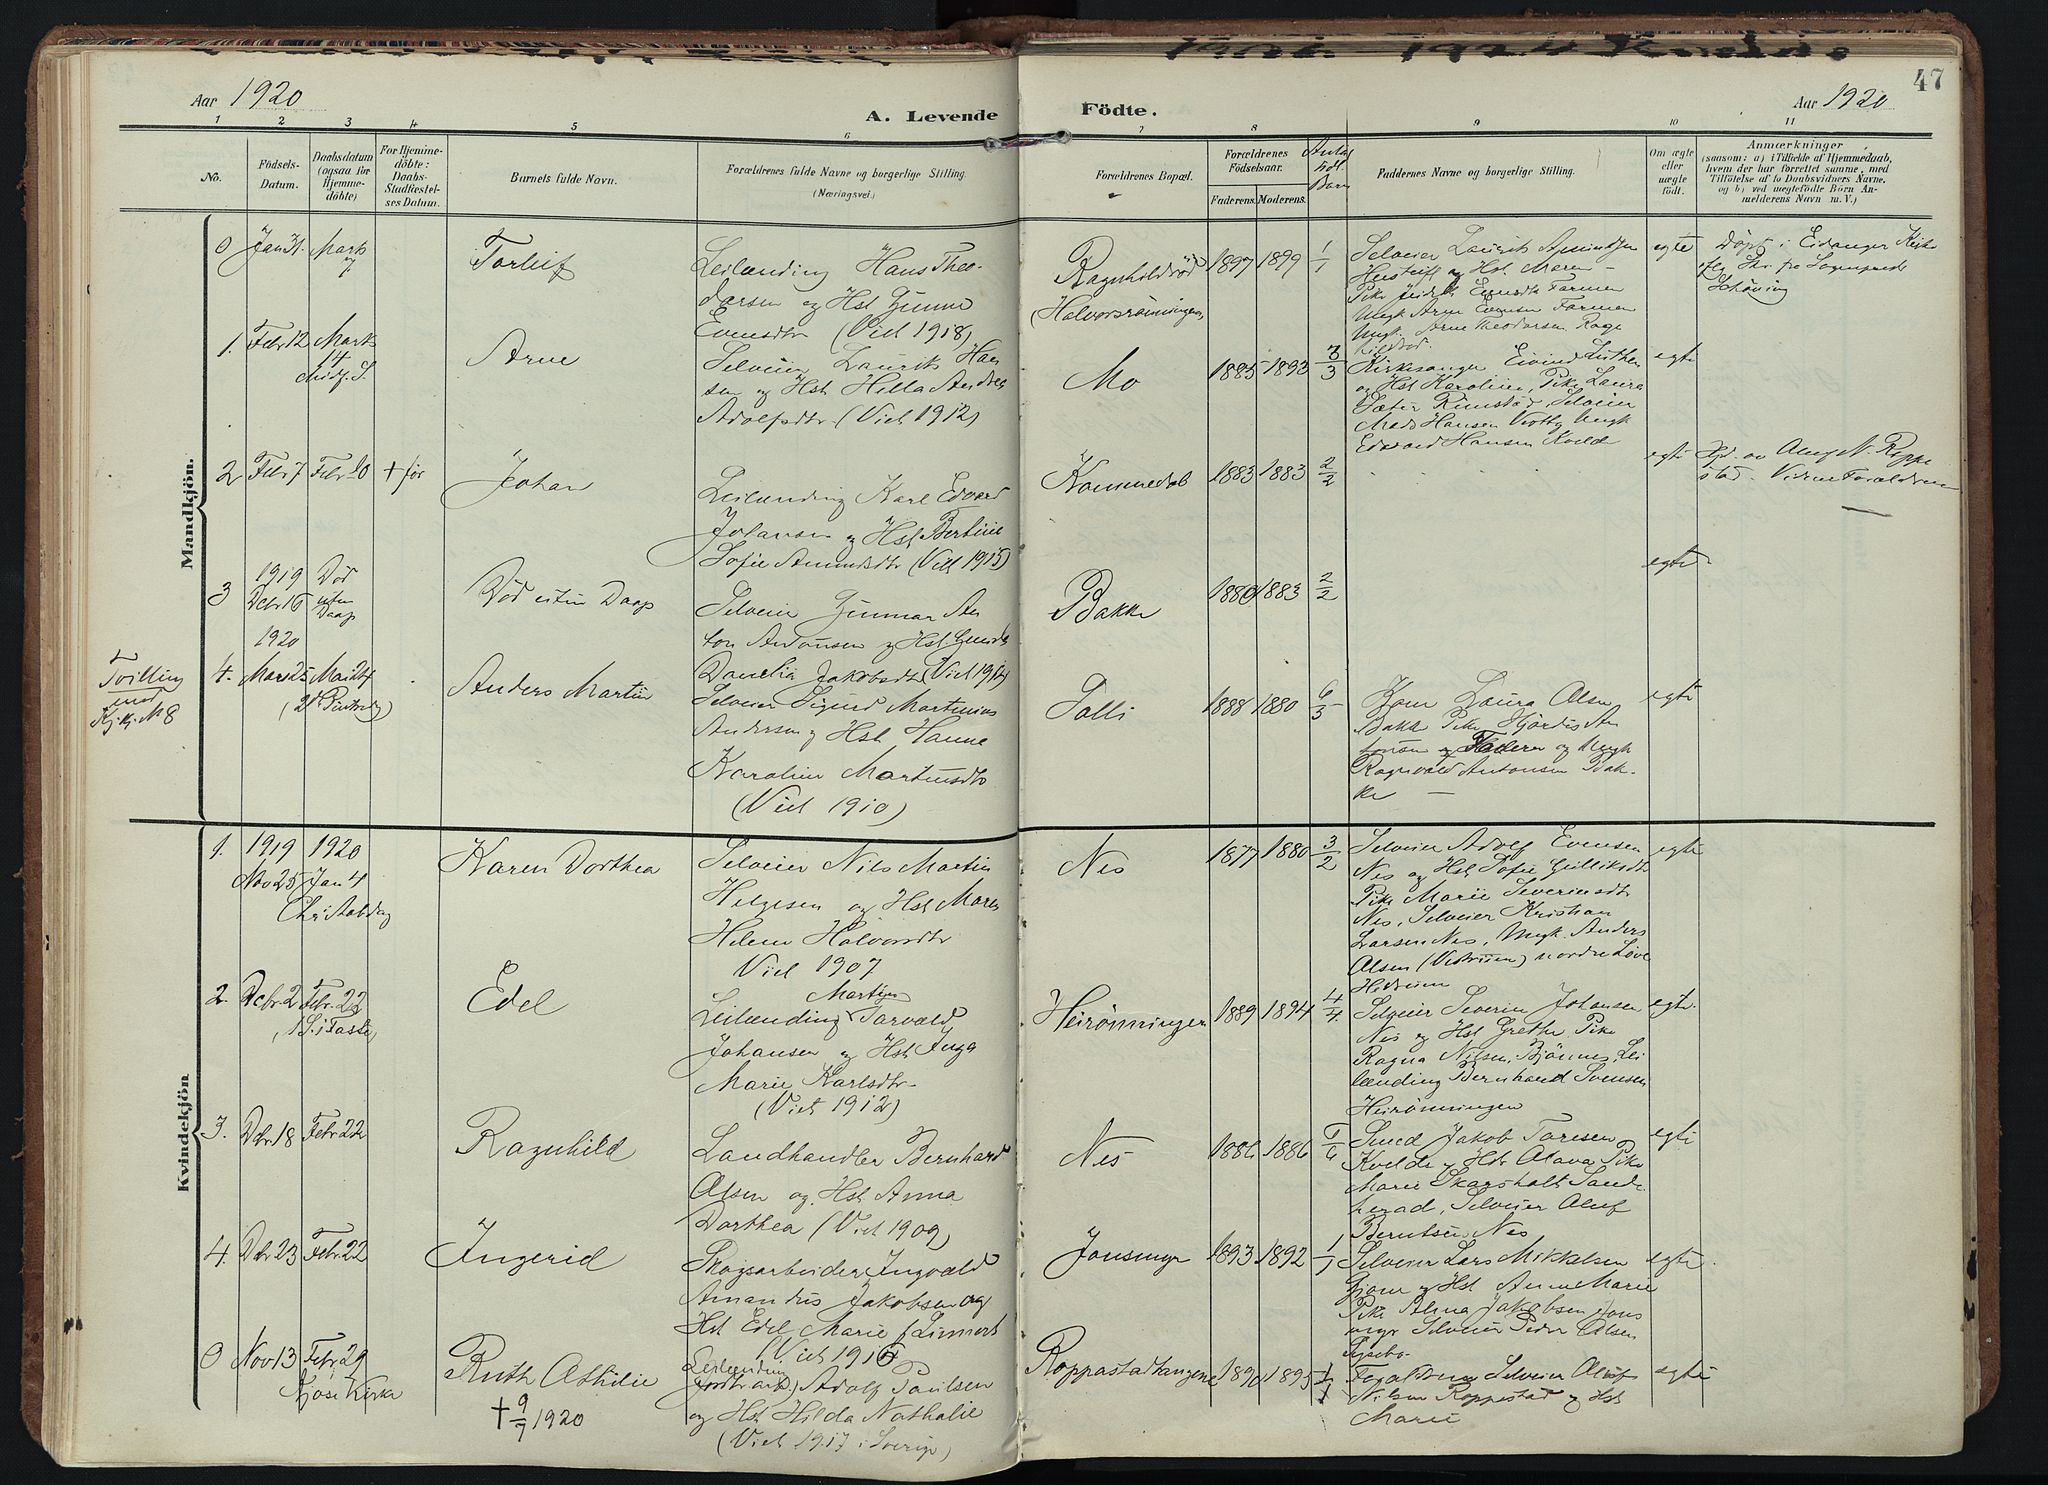 Aar 1920
A. Levende
Födte.
Aar 1920
47
1 2 3 4 5 6 7 8 9 10 11
No.
Födsels-
Datum.
Daabsdatum
(ogsaa for
Hjemme-
döbte)
For Hjemme-
döbte:
Daabs-
Stadfæstel-
ses Datum.
Barnets fulde Navn.
Forældrenes fulde Navne og borgerlige Stilling.
(Næringsvei.)
Forældrenes Bopæl.
Forældrenes
Födselsaar.
Faderens. Moderens.
Antal
Barn
Faddernes Navne og borgerlige Stilling.
Om ægte
eller
uægte
födt.
Anmærkninger
(saasom: a) i Tilfælde af Hjemmedaab,
hvem der har forrettet samme, med
Tilföielse af to Daabsvidners Navne,
og b) ved uægtefödte Börn An-
melderens Navn m. V.)
Mandkjön.
0 Jan 31. Mark 7
Torleif
Leilænding Hans Theo-
dorsen og Hst Gunne
Evensdtr (Viet 1918)
Ragnhildröd
(Halvorsrönningen)
1897 1899 1/1
Selveier Laurits Amundsen
og Hst Maren -
Pike Evensdtr Farmen
Ungk Arne Evensen Farmen
Ungk. Arne Theodorsen Ragn
hildröd
egte
Döpt i Eidanger Kirke
1. Febr 12 Mark
14
Midf. S.
Arne
Selveier Laurits Han
sen og Hst Hilla Andrea
Adolfsdtr (Viet 1912)
Mo
1885 1893 3/3
Kirkesanger Eivind Luthen
og Hst Karoline, Pike Laura
Sæter Rimstad, Selveier
Mads Hansen Ungk
Edvard Hansen Kvelde
egte
2 Febr 7 Febr 20 + för
Johan
Leilænding Karl Edvard
Johansen og Hst Bertine
Sofie Amundsdtr (Viet 1915)
Kommedal
1883 1883 2/2
egte
Hjd. av Aluf N. Roppe
stad. Vidne Forældrene
3 1919
Dcbr 16
Död
uten
Daap
Död uten Daap
Selveier Gunnar An
ton Antonsen og Hst Gunda
Danelia Jakobsdtr (Viet 1914)
Bakke
1880 1883 2/2
egte
Tvilling
med
Kj.kj. No 8
1920
4. Mars 25 Mai 24
(2d Pintsedag)
Anders Martin
Selveier Sigurd Martinius
Andersen og Hst Hanne
Karoline Martinsdtr
(Viet 1910)
Palli
1888 1880
Kone Laura Olsen
Bakke Pike Hjördis An
tonsen og Faderen og Ungk
Ragnvald Antonsen Bak-
ke -
egte
Kvindekjön
1. 1919 1920
Nov 25 Jan 4
Karen Dorthea
Selveier Nils Martin
Helgesen og Hst Maren
Helene Halvorsdtr
Viet 1907
Nes
1877 1880 3/2
Selveier Adolf Evensen
Nes og Hst Sofie Gulliksdtr
Pike Marie Severinsdtr
Nes, Selveier Kristian
Larsen Nes, Ungk. Anders
Olsen nordre Löve
Hedrum
egte
2. Dcbr. 2 Febr. 22
1 S. i Faste
Edel
Martin
Leilænding Torvald
Johansen og Hst Inga
Marie Karlsdtr
(Viet 1912)
Heirönningen
1889 1894 4/4
Selveier Severin Johansen
Nes og Hst Grethe Pike
Ragna Nilsen, Bjönnes, Lei
lænding Bernhard Svensen
Heirönningen
egte.
3. Dcbr 18 Febr 22
Ragnhild
Landhandler Bernhard
Olsen og Hst Anna
Dorthea (Viet 1909)
Nes
1886 1886
Smed Jakob Toresen
Kvelde og Hst Olava, Pike
Marie Skarsholt Sande
herad, Selveier Oluf
Berntsen Nes
egte
4. Dcbr 23 Febr 22
Ingerid
Skogsarbeider Ingvald
Amandus Jakobsen og
Hst Edel Marie f. Linnert
(Viet 1916)
Jonsmyr
1893 1892 1/1
Selveier Lars Mikkelsen
Gjone og Hst Anne Marie
Pike Alma Jakobsen Jons
myr Selveier Peder Olsen
egte
0 Nov 13 Febr 29
Kjose Kirke
Ruth Othilie
+ 9/7 1920
Leilænding
Adolf Paulsen
og Hst Hilda Nathalie
(Viet 1917 i Sverige)
Roppestadtangene
1890 1895 1/1
Forældrene Selveier Oluf
Nilsen Roppestad og Hst
Marie
egte